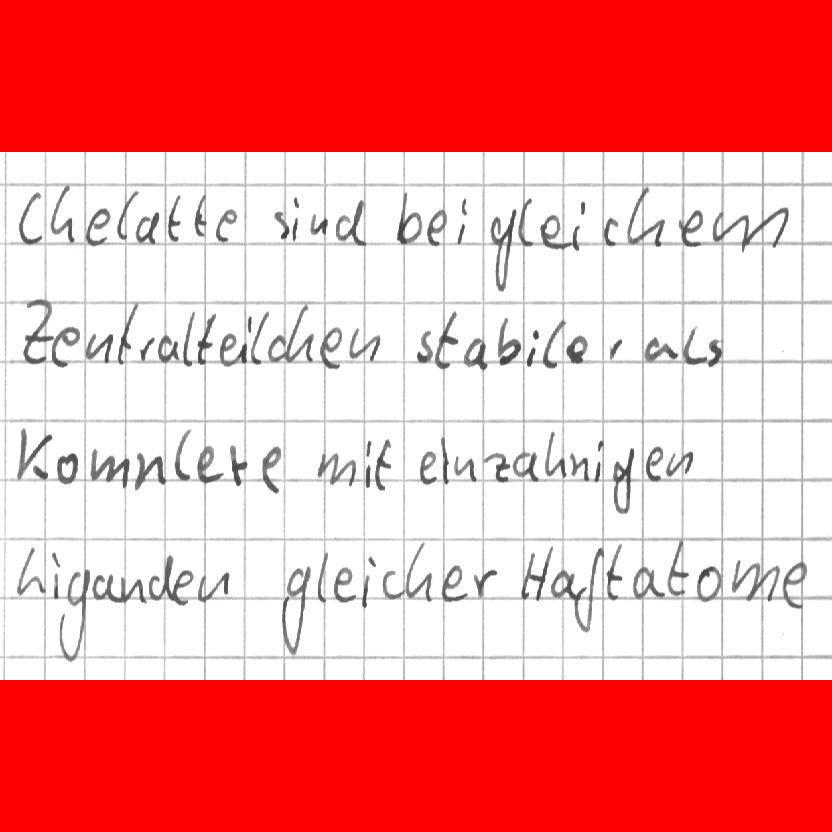 Chelatte sind bei gleichem
Zentralteilchen stabiler als
Komplexe mit einzahnigen
Liganden gleicher Haftatome